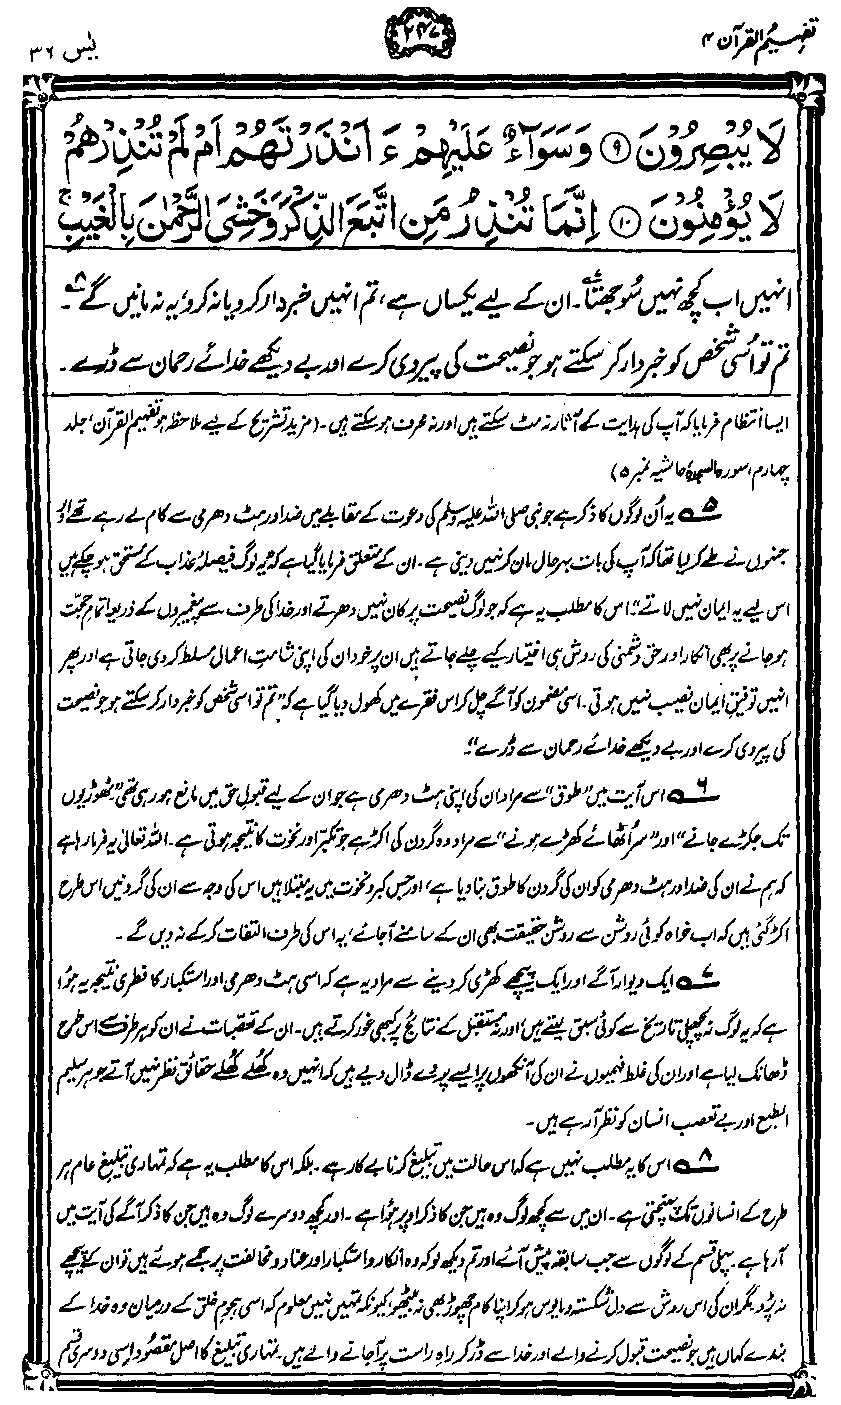 تفہیم القرآن ۴
۲۴۷
یٰس ۳۶
لَا يُبْصِرُوْنَ ۹ وَسَوَآءٌ عَلَيْهِمْ ءَاَنْذَرْتَهُمْ اَمْ لَمْ تُنْذِرْهُمْ
لَا يُؤْمِنُوْنَ ۱۰ اِنَّمَا تُنْذِرُ مَنِ اتَّبَعَ الذِّكْرَ وَخَشِيَ الرَّحْمٰنَ بِالْغَيْبِ ۚ
انہیں اب کچھ نہیں سُوجھتا۷۔ ان کے لیے یکساں ہے، تم انہیں خبردار کرو یا نہ کرو، یہ نہ مانیں گے۸۔
تم تو اُسی شخص کو خبردار کر سکتے ہو جو نصیحت کی پیروی کرے اور بے دیکھے خدائے رحمان سے ڈرے۔
ایسا انتظام فرمایا کہ آپ کی ہدایت کے آثار نہ مٹ سکتے ہیں اور نہ محرف ہو سکتے ہیں۔ (مزید تشریح کے لیے ملاحظہ ہو تفہیم القرآن، جلد
چہارم، سورہ السجدہ، حاشیہ نمبر ۵)
۵ یہ اُن لوگوں کا ذکر ہے جو نبی صلی اللہ علیہ وسلم کی دعوت کے مقابلے میں ضد اور ہٹ دھرمی سے کام لے رہے تھے اور
جنہوں نے طے کر لیا تھا کہ آپ کی بات بہرحال مان کر نہیں دینی ہے۔ ان کے متعلق فرمایا گیا ہے کہ "یہ لوگ فیصلۂ عذاب کے مستحق ہو چکے ہیں
اس لیے یہ ایمان نہیں لاتے"۔ اس کا مطلب یہ ہے کہ جو لوگ نصیحت پر کان نہیں دھرتے اور خدا کی طرف سے پیغمبروں کے ذریعہ اتمام حجت
ہو جانے پر بھی انکار اور حق دشمنی کی روش ہی اختیار کیے چلے جاتے ہیں ان پر خود ان کی اپنی شامتِ اعمال مسلط کر دی جاتی ہے اور پھر
انہیں توفیقِ ایمان نصیب نہیں ہوتی۔ اسی مضمون کو آگے چل کر اس فقرے میں کھول دیا گیا ہے کہ "تم تو اسی شخص کو خبردار کر سکتے ہو جو نصیحت
کی پیروی کرے اور بے دیکھے خدائے رحمان سے ڈرے"۔
۶ اس آیت میں "طوق" سے مراد ان کی اپنی ہٹ دھرمی ہے جو ان کے لیے قبولِ حق میں مانع ہو رہی تھی۔ "ٹھوڑیوں
تک جکڑے جانے" اور "سر اُٹھائے کھڑے ہونے" سے مراد وہ گردن کی اکڑ ہے جو تکبر اور نخوت کا نتیجہ ہوتی ہے۔ اللہ تعالیٰ یہ فرما رہا ہے
کہ ہم نے ان کی ضد اور ہٹ دھرمی کو ان کی گردن کا طوق بنا دیا ہے، اور جس کبر و نخوت میں یہ مبتلا ہیں اس کی وجہ سے ان کی گردنیں اس طرح
اکڑ گئی ہیں کہ اب خواہ کوئی روشن سے روشن حقیقت بھی ان کے سامنے آجائے، یہ اس کی طرف التفات کر کے نہ دیں گے۔
۷ ایک دیوار آگے اور ایک پیچھے کھڑی کر دینے سے مراد یہ ہے کہ اسی ہٹ دھرمی اور استکبار کا فطری نتیجہ یہ ہوا
ہے کہ یہ لوگ نہ پچھلی تاریخ سے کوئی سبق لیتے ہیں، اور نہ مستقبل کے نتائج پر کبھی غور کرتے ہیں۔ ان کے تعصبات نے ان کو ہر طرف سے اس طرح
ڈھانک لیا ہے اور ان کی غلط فہمیوں نے ان کی آنکھوں پر ایسے پردے ڈال دیے ہیں کہ انہیں وہ کھلے کھلے حقائق نظر نہیں آتے جو ہر سلیم
الطبع اور بے تعصب انسان کو نظر آ رہے ہیں۔
۸ اس کا یہ مطلب نہیں ہے کہ اس حالت میں تبلیغ کرنا بے کار ہے۔ بلکہ اس کا مطلب یہ ہے کہ تمہاری تبلیغ عام ہر
طرح کے انسانوں تک پہنچتی ہے۔ ان میں سے کچھ لوگ وہ ہیں جن کا ذکر اوپر ہوا ہے۔ اور کچھ دوسرے لوگ وہ ہیں جن کا ذکر آگے کی آیت میں
آ رہا ہے۔ پہلی قسم کے لوگوں سے جب سابقہ پیش آئے اور تم دیکھ لو کہ وہ انکار و استکبار اور عناد و مخالفت پر جمے ہوئے ہیں تو ان کے پیچھے
نہ پڑو۔ مگر ان کی اس روش سے دل شکستہ و مایوس ہو کر اپنا کام چھوڑ بھی نہ بیٹھو، کیونکہ تمہیں نہیں معلوم کہ اسی ہجومِ خلق کے درمیان وہ خدا کے
بندے کہاں ہیں جو نصیحت قبول کرنے والے اور خدا سے ڈر کر راہِ راست پر آجانے والے ہیں۔ تمہاری تبلیغ کا اصل مقصود اسی دوسری قسم